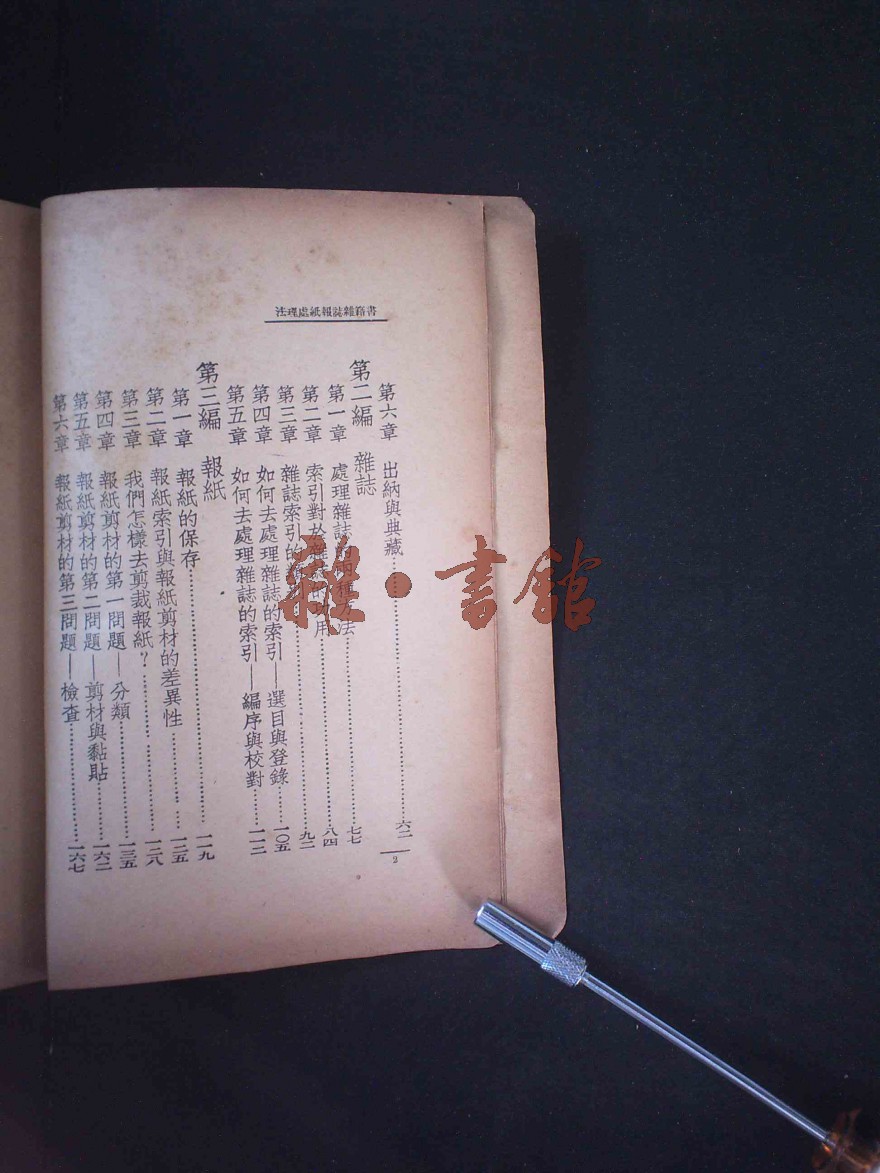 書籍雜誌報紙處理法
第六章 出納與典藏……六二
第二編 雜誌
第一章 處理雜誌的兩種方法……七七
第二章 索引對於雜誌的功用……八四
第三章 雜誌索引的……九二
第四章 如何去處理雜誌的索引——選目與登錄……一〇五
第五章 如何去處理雜誌的索引——編序與校對……一一三
第三編 報紙
第一章 報紙的保存……一一九
第二章 報紙索引與報紙剪材的差異性……一二五
第三章 我們怎樣去剪裁報紙？……一二八
第四章 報紙剪材的第一問題——分類……一三五
第五章 報紙剪材的第二問題——剪材與黏貼……一六二
第六章 報紙剪材的第三問題——檢查……一六七
2
雜·書館